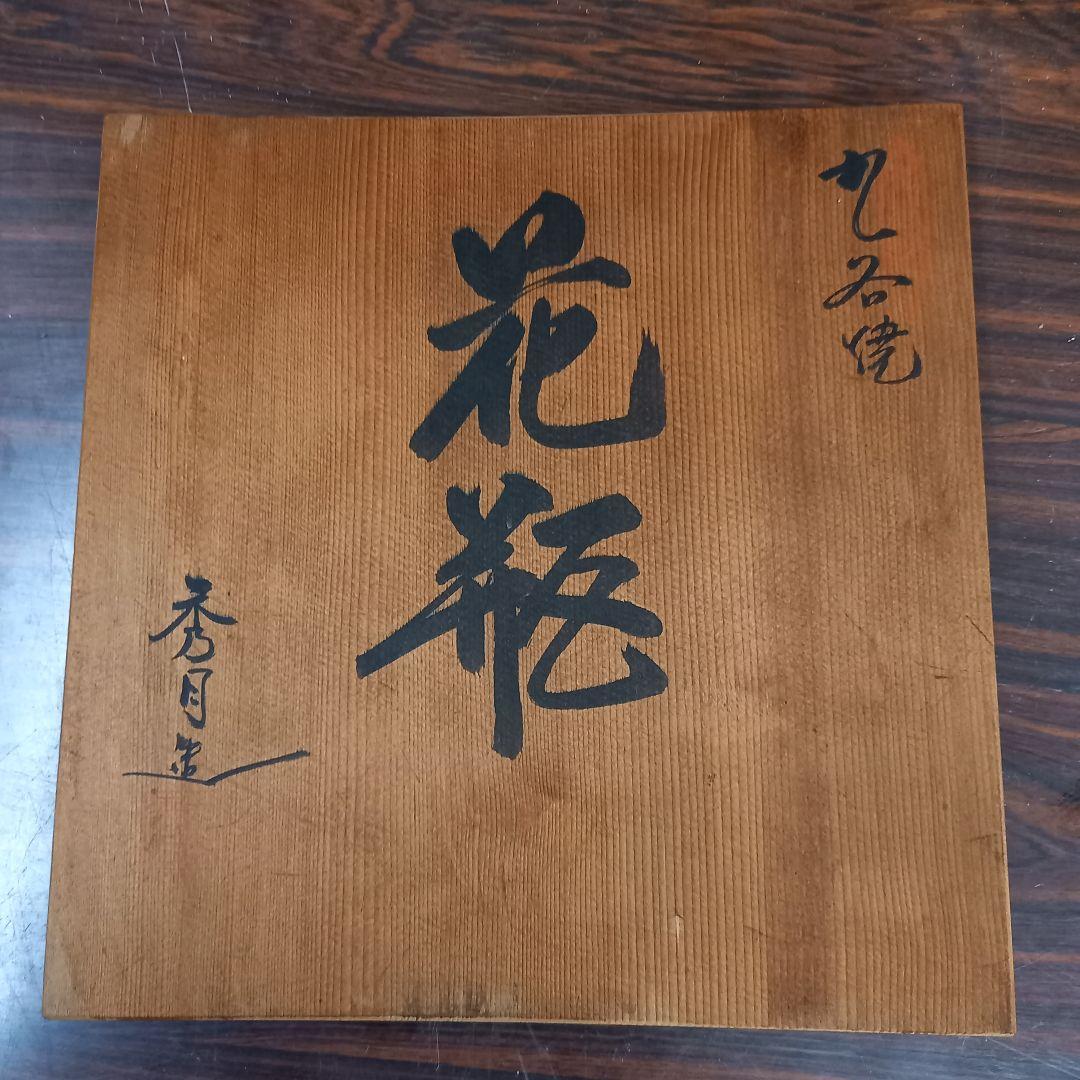 九谷焼
花瓶
秀月造